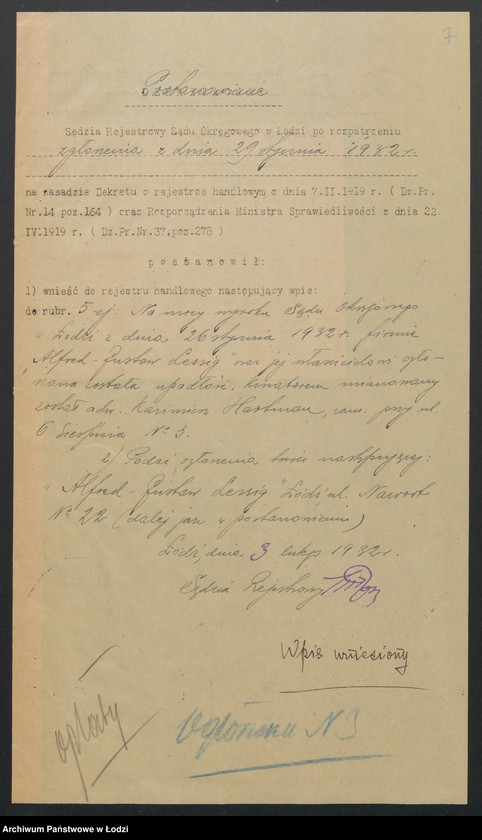 7
Postanowienie
Sędzia Rejestrowy Sądu Okręgowego w Łodzi po rozpatrzeniu
zgłoszenia z dnia 29 stycznia 1932 r.
na zasadzie Dekretu o rejestrze handlowym z dnia 7.II.1919 r. ( Dz.Pr.
Nr.14 poz.164 ) oraz Rozporządzenia Ministra Sprawiedliwości z dnia 22
IV.1919 r. ( Dz.Pr.Nr.37,poz.278 )
p o s t a n o w i ł :
1) wnieść do rejestru handlowego następujący wpis:
do rubr. 5-ej: Na mocy wyroku Sądu Okręgowego
w Łodzi z dnia 26 stycznia 1932 r. firmie
"Alfred-Gustaw Lessig" oraz jej właścicielowi ogło-
szona została upadłość. Kuratorem mianowany
został adw. Kazimierz Hartman, zam. przy ul.
6 Sierpnia № 3.
2) Podać ogłoszenia treści następującej:
"Alfred-Gustaw Lessig" Łódź ul. Nawrot
№ 22 (dalej jak w postanowieniu)
Łódź, dnia 3 lutego 1932 r.
Sędzia Rejestrowy
Wpis wniesiony
opłaty
Ogłoszenie N 3
Archiwum Państwowe w Łodzi